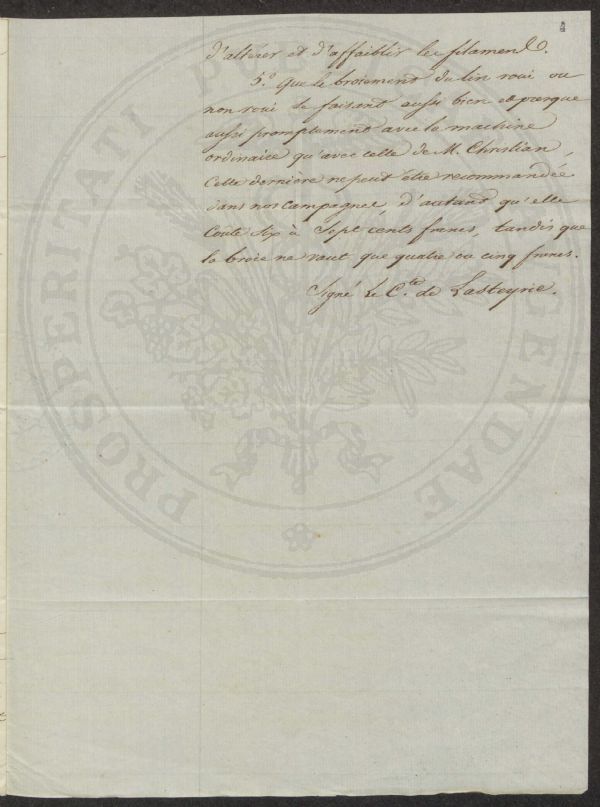 4
d'altérer et d'affaiblir les filamens.
5.° Que le broiement du lin roui ou
non roui se faisant aussi bien et presque
aussi promptement avec la machine
ordinaire qu'avec celle de M. Christian,
Cette dernière ne peut être recommandée
dans nos campagnes, d'autant qu'elle
Coute Six à Sept cents francs, tandis que
la broie ne vaut que quatre ou cinq francs.
Signé Le C.te de Lasteyrie.
PROSPERITATI PUBLICAE AUGENDAE